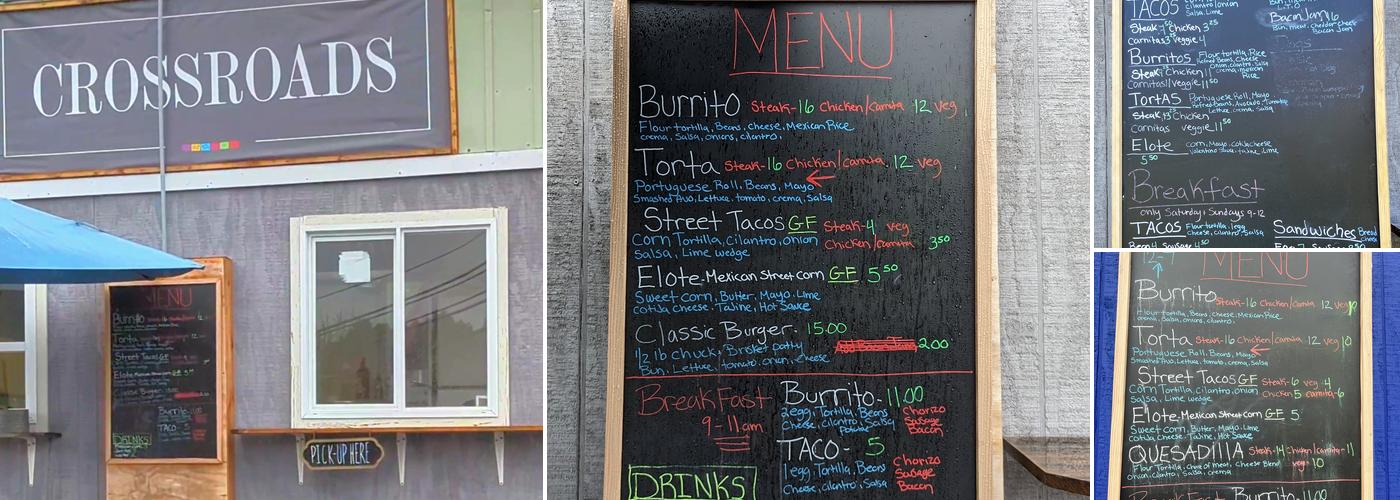 CROSSROADS
MENU
Burrito
Torta
Street Tacos GF
Elote
Classic Burger
Burrito 11.00
TACO 5
DRINKS
PICK-UP HERE
MENU
Burrito Steak-16 Chicken/Carnita 12 veg
Flour tortilla, Beans, Cheese, Mexican Rice
crema, Salsa, onions, cilantro,
Torta Steak-16 Chicken/Carnita, 12 veg
Portuguese Roll, Beans, Mayo
Smashed Avo, Lettuce, tomato, crema, Salsa
Street Tacos GF Steak-4 veg
Corn Tortilla, cilantro, onion Chicken/Carnita 3 50
Salsa, Lime wedge
Elote-Mexican Street corn GF 5 50
Sweet corn, Butter, Mayo, Lime
cotija Cheese, Tajine, Hot Sauce
Classic Burger- 15.00
1/2 lb chuck, Brisket Patty
2.00
Bun, Lettuce, tomato, onion, cheese
BreakFast
9-11am
Burrito- 11.00
2egg, Tortilla, Beans
Potatoe
Cheese, cilantro, Salsa
Chorizo
Sausage
Bacon
TACO- 5
1egg, Tortilla, Beans
Cheese, cilantro, Salsa
Chorizo
Sausage
Bacon
DRINKS
TACOS
cilantro/onion
Salsa, Lime
Steak Chicken 3 25
Carnitas Veggie 4
Bacon Jam 16
Bun, meat, cheddar cheese
Bacon Jam
Burritos Flour tortilla, Rice
Refried Beans, Cheese
onion, cilantro, Salsa
crema, mexican
Rice
Steak Chicken 11
Carnitas 11 Veggie 11 50
TortAS Portuguese Roll, Mayo
Refried Beans, Avocado, Tomatoe
Lettuce, crema, Salsa
Steak 13 Chicken
Carnitas veggie 11 50
Elote corn, Mayo, cotija cheese
Valentina Salsa, tajine, Lime
5 50
Breakfast
only Saturday & Sundays 9-12
TACOS Flour tortilla, 1 egg
Cheese, cilantro, Salsa
Sandwiches Bread
MENU
Burrito Steak-16 Chicken/Carnita 12 veg
Flour Tortilla, Beans, Cheese, Mexican Rice
crema, Salsa, onions, cilantro,
Torta Steak-16 Chicken/Carnita, 12 veg 10
Portuguese Roll, Beans, Mayo
Smashed Avo, Lettuce, tomato, crema, Salsa
Street Tacos GF Steak-6 veg-4
Corn Tortilla, Cilantro, onion Chicken 5 carnita-6
Salsa, Lime wedge
Elote-Mexican Street corn GF 5
Sweet corn, Butter, Mayo, Lime
cotija Cheese, Tajine, Hot Sauce
QUESADILLA Steak-14 Chicken/Carnita-11
Flour Tortilla, Choice of meat, Cheese Blend veg-10
onion, cilantro, Salsa, crema
BreakFast Burrito- 11.00